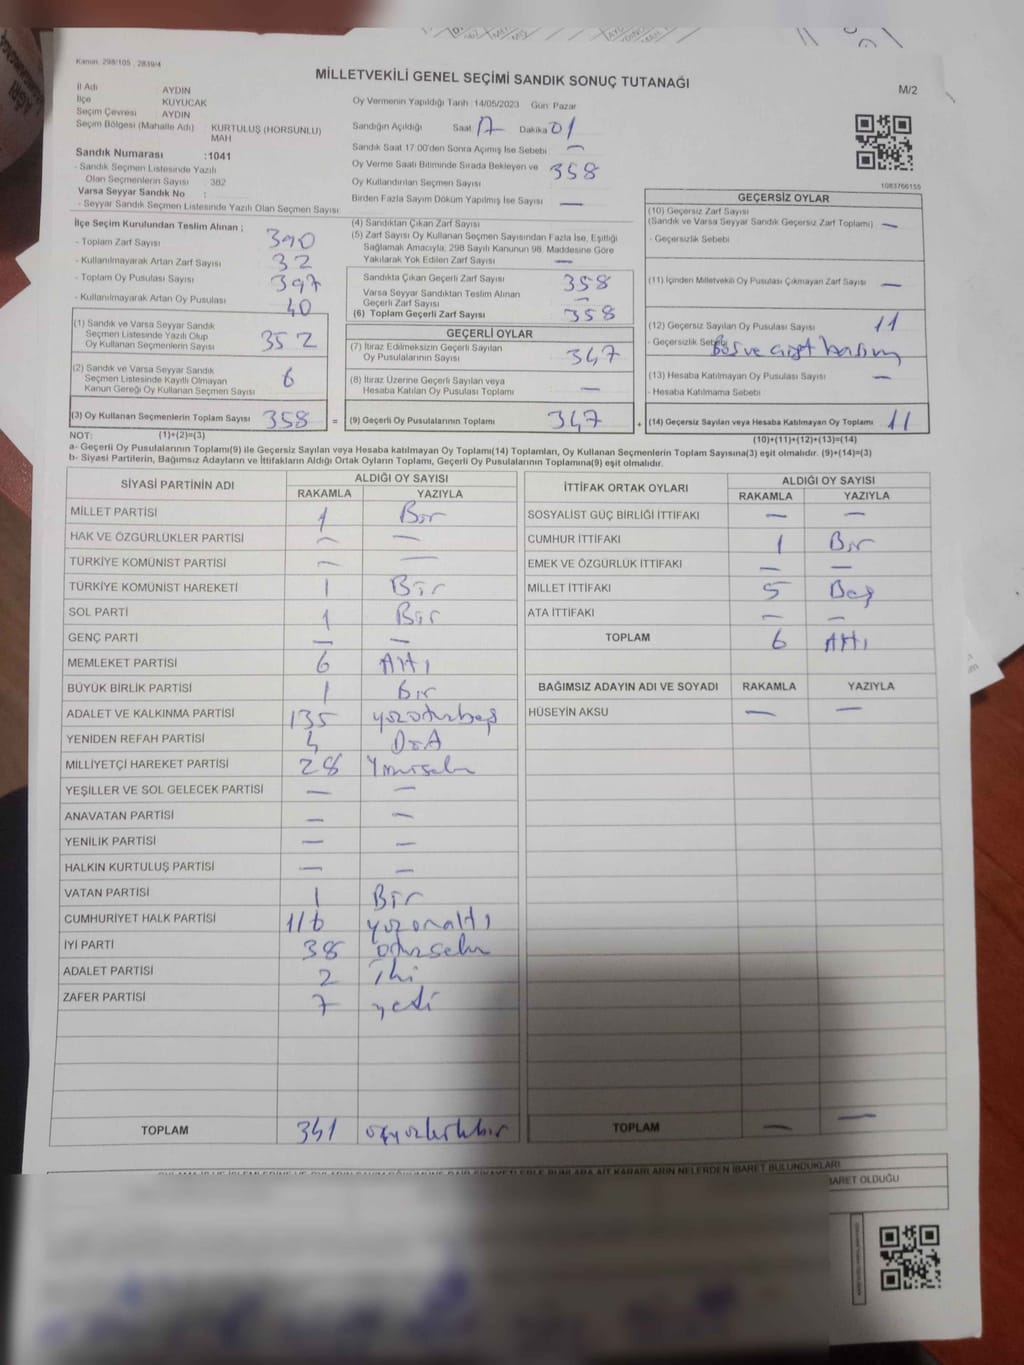 Kanun: 298/105 , 2839/4
MİLLETVEKİLİ GENEL SEÇİMİ SANDIK SONUÇ TUTANAĞI
M/2
İl Adı AYDIN
İlçe KUYUCAK
Seçim Çevresi AYDIN
Seçim Bölgesi (Mahalle Adı) KURTULUŞ (HORSUNLU) MAH
Sandık Numarası :1041
- Sandık Seçmen Listesinde Yazılı
Olan Seçmenlerin Sayısı : 382
Varsa Seyyar Sandık No :
- Seyyar Sandık Seçmen Listesinde Yazılı Olan Seçmen Sayısı
Oy Vermenin Yapıldığı Tarih :14/05/2023 Gün: Pazar
Sandığın Açıldığı Saat 17 Dakika 01
Sandık Saat 17:00'den Sonra Açımış İse Sebebi —
Oy Verme Saati Bitiminde Sırada Bekleyen ve 358
Oy Kullandırılan Seçmen Sayısı
Birden Fazla Sayım Döküm Yapılmış İse Sayısı —
1083766155
İlçe Seçim Kurulundan Teslim Alınan ;
- Toplam Zarf Sayısı 390
- Kullanılmayarak Artan Zarf Sayısı 32
- Toplam Oy Pusulası Sayısı 397
- Kullanılmayarak Artan Oy Pusulası 40
(1) Sandık ve Varsa Seyyar Sandık
Seçmen Listesinde Yazılı Olup
Oy Kullanan Seçmenlerin Sayısı 352
(2) Sandık ve Varsa Seyyar Sandık
Seçmen Listesinde Kayıtlı Olmayan
Kanun Gereği Oy Kullanan Seçmen Sayısı 6
(3) Oy Kullanan Seçmenlerin Toplam Sayısı 358
(4) Sandıktan Çıkan Zarf Sayısı
(5) Zarf Sayısı Oy Kullanan Seçmen Sayısından Fazla İse, Eşitliği
Sağlamak Amacıyla, 298 Sayılı Kanunun 98. Maddesine Göre
Yakılarak Yok Edilen Zarf Sayısı —
Sandıkta Çıkan Geçerli Zarf Sayısı 358
Varsa Seyyar Sandıktan Teslim Alınan
Geçerli Zarf Sayısı —
(6) Toplam Geçerli Zarf Sayısı 358
GEÇERLİ OYLAR
(7) İtiraz Edilmeksizin Geçerli Sayılan
Oy Pusulalarının Sayısı 347
(8) İtiraz Üzerine Geçerli Sayılan veya
Hesaba Katılan Oy Pusulası Toplamı —
= (9) Geçerli Oy Pusulalarının Toplamı 347
GEÇERSİZ OYLAR
(10) Geçersiz Zarf Sayısı
(Sandık ve Varsa Seyyar Sandık Geçersiz Zarf Toplamı) —
- Geçersizlik Sebebi
(11) İçinden Milletvekili Oy Pusulası Çıkmayan Zarf Sayısı —
(12) Geçersiz Sayılan Oy Pusulası Sayısı 11
- Geçersizlik Sebebi Boş ve çift basım
(13) Hesaba Katılmayan Oy Pusulası Sayısı —
- Hesaba Katılmama Sebebi
+ (14) Geçersiz Sayılan veya Hesaba Katılmayan Oy Toplamı 11
NOT: (1)+(2)=(3)
(10)+(11)+(12)+(13)=(14)
a- Geçerli Oy Pusulasının Toplamı(9) ile Geçersiz Sayılan veya Hesaba katılmayan Oy Toplamı(14) Toplamları, Oy Kullanan Seçmenlerin Toplam Sayısına(3) eşit olmalıdır. (9)+(14)=(3)
b- Siyasi Partilerin, Bağımsız Adayların ve İttifakların Aldığı Ortak Oyların Toplamı, Geçerli Oy Pusulalarının Toplamına(9) eşit olmalıdır.
SİYASİ PARTİNİN ADI ALDIĞI OY SAYISI
RAKAMLA YAZIYLA
MİLLET PARTİSİ 1 Bir
HAK VE ÖZGÜRLÜKLER PARTİSİ — —
TÜRKİYE KOMÜNİST PARTİSİ — —
TÜRKİYE KOMÜNİST HAREKETİ 1 Bir
SOL PARTİ 1 Bir
GENÇ PARTİ — —
MEMLEKET PARTİSİ 6 Altı
BÜYÜK BİRLİK PARTİSİ 1 Bir
ADALET VE KALKINMA PARTİSİ 135 yüzotuzbeş
YENİDEN REFAH PARTİSİ 4 Dört
MİLLİYETÇİ HAREKET PARTİSİ 28 Yirmisekiz
YEŞİLLER VE SOL GELECEK PARTİSİ — —
ANAVATAN PARTİSİ — —
YENİLİK PARTİSİ — —
HALKIN KURTULUŞ PARTİSİ — —
VATAN PARTİSİ 1 Bir
CUMHURİYET HALK PARTİSİ 116 yüzonaltı
İYİ PARTİ 38 otuzsekiz
ADALET PARTİSİ 2 iki
ZAFER PARTİSİ 7 yedi
TOPLAM 341 üçyüzkırkbir
İTTİFAK ORTAK OYLARI ALDIĞI OY SAYISI
RAKAMLA YAZIYLA
SOSYALİST GÜÇ BİRLİĞİ İTTİFAKI — —
CUMHUR İTTİFAKI 1 Bir
EMEK VE ÖZGÜRLÜK İTTİFAKI — —
MİLLET İTTİFAKI 5 Beş
ATA İTTİFAKI — —
TOPLAM 6 Altı
BAĞIMSIZ ADAYIN ADI VE SOYADI RAKAMLA YAZIYLA
HÜSEYİN AKSU — —
TOPLAM — —
KARARLARIN NELERDEN İBARET BULUNDUKLARI
İBARET OLDUĞU